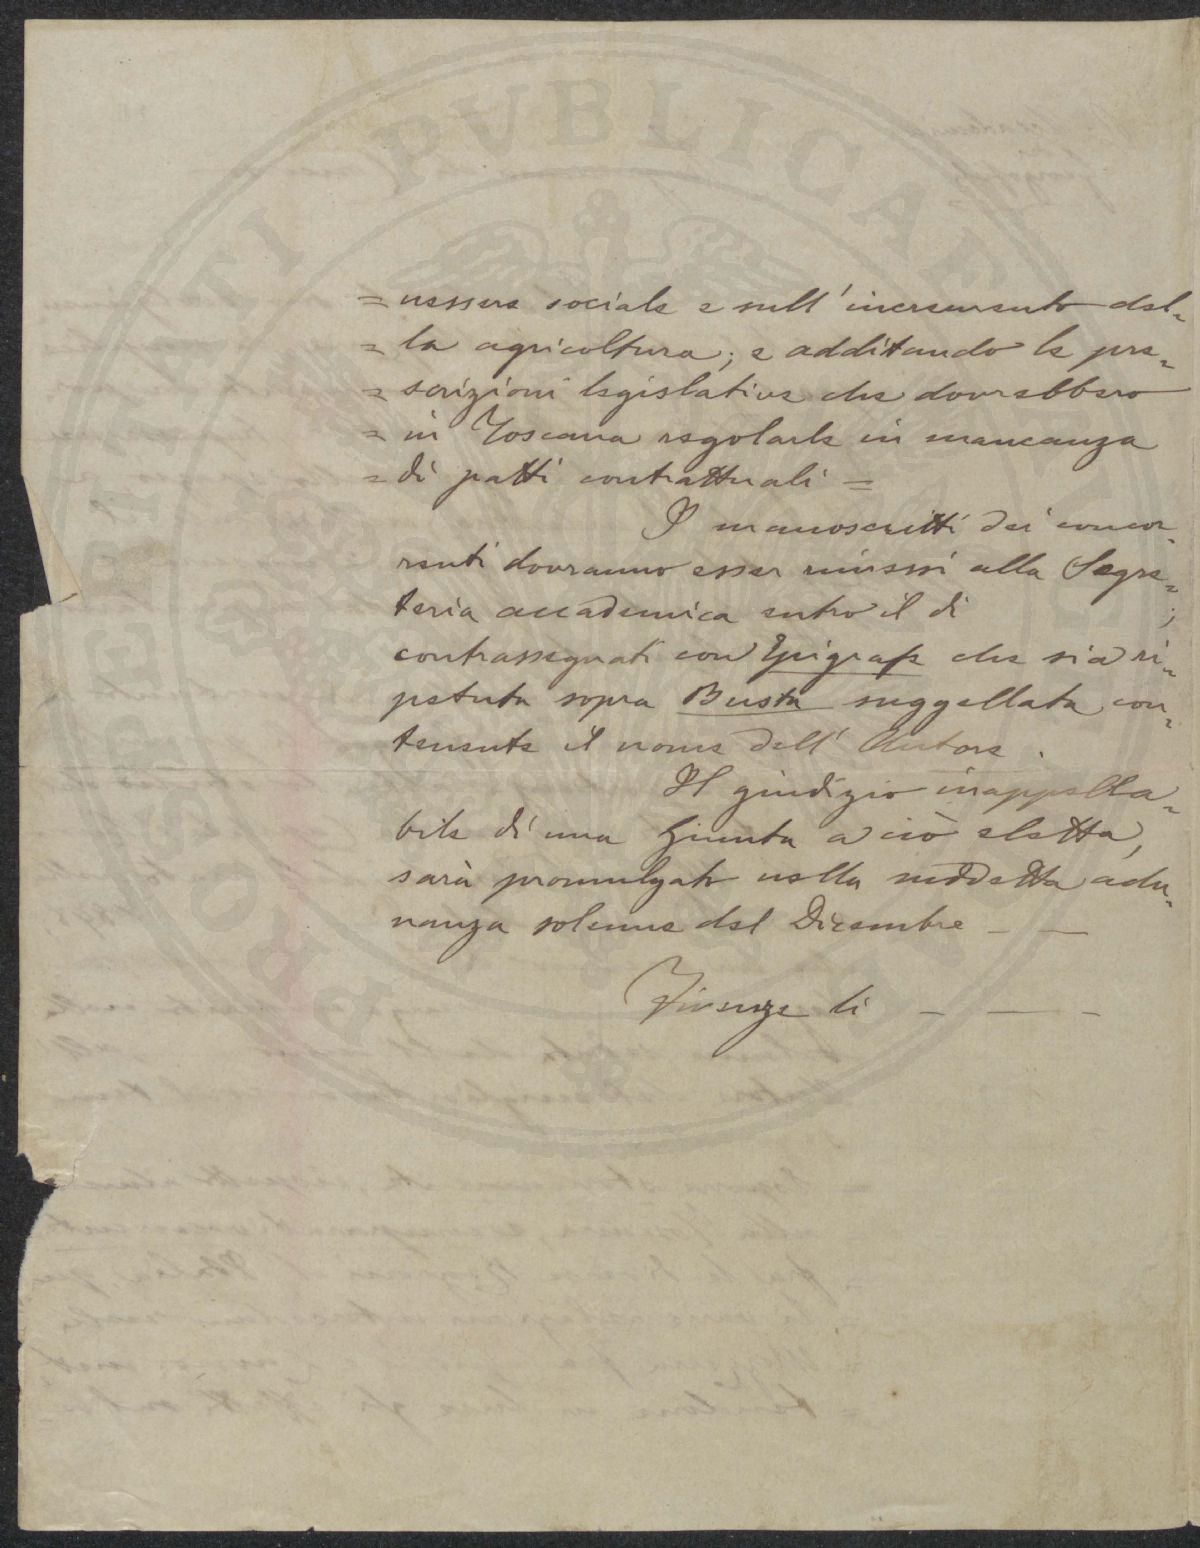 PROSPERITATI PUBLICAE AUGENDAE
= nessere sociale e sull' incremento del=
= la agricoltura; e additando le pre=
= scrizioni legislative che dovrebbero
= in Toscana regolarle in mancanza
= di patti contrattuali =
I manoscritti dei concor=
renti dovranno esser rimessi alla Segre=
teria accademica entro il dì ;
contrassegnati con Epigrafe che sia ri=
petuta sopra Busta suggellata con=
tenente il nome dell' Autore.
Il giudizio inappella=
bile di una Giunta a ciò eletta,
sarà promulgato nella suddetta adu=
nanza solenne del Dicembre — —
Firenze li — — —